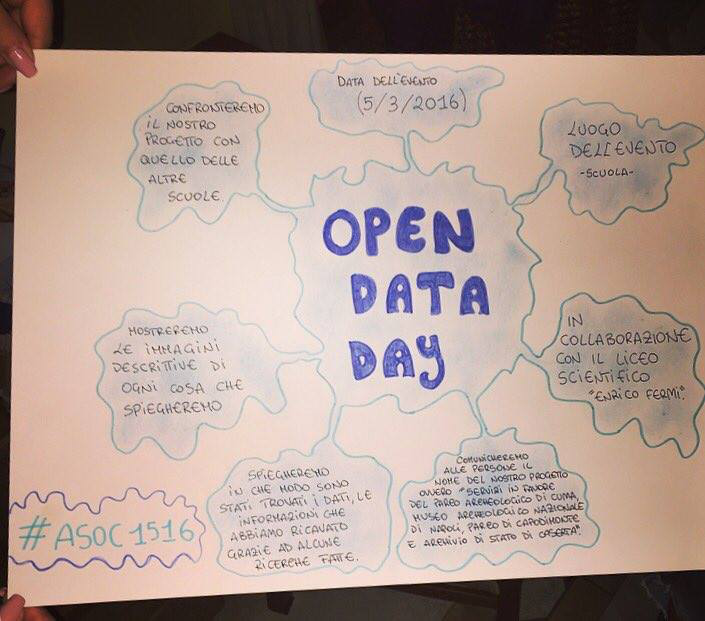 DATA DELL'EVENTO
(5/3/2016)
LUOGO
DELL'EVENTO
-SCUOLA-
CONFRONTEREMO
IL NOSTRO
PROGETTO CON
QUELLO DELLE
ALTRE
SCUOLE.
OPEN
DATA
DAY
MOSTREREMO
LE IMMAGINI
DESCRITTIVE DI
OGNI COSA CHE
SPIEGHEREMO
IN
COLLABORAZIONE
CON IL LICEO
SCIENTIFICO
"ENRICO FERMI".
SPIEGHEREMO
IN CHE MODO SONO
STATI TROVATI I DATI, LE
INFORMAZIONI CHE
ABBIAMO RICAVATO
GRAZIE AD ALCUNE
RICERCHE FATTE.
COMUNICHEREMO
ALLE PERSONE IL
NOME DEL NOSTRO PROGETTO
OVVERO "SERVIZI IN FAVORE
DEL PARCO ARCHEOLOGICO DI CUMA,
MUSEO ARCHEOLOGICO NAZIONALE
DI NAPOLI, PARCO DI CAPODIMONTE
E ARCHIVIO DI STATO DI CASERTA".
#ASOC1516